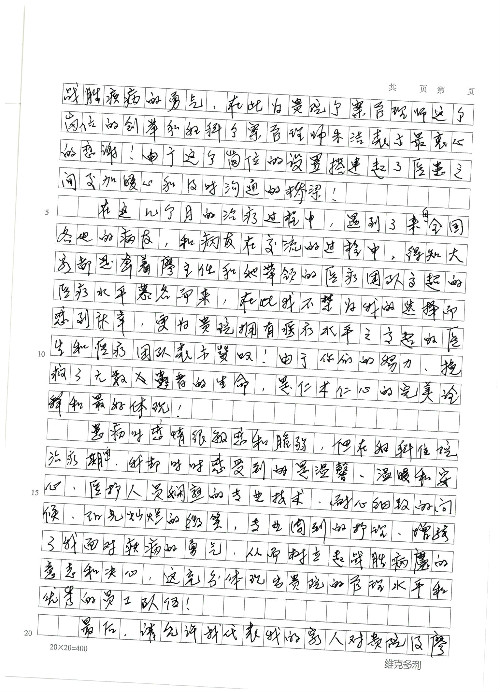 共 页 第 页
战胜疾病的勇气,在此为贵院个案管理师这个
岗位的创举和妇科个案管理师朱洁表示最衷心
的感谢!由于这个岗位的设置搭建起了医患之
间交加暖心和及时沟通的桥梁!
5 在这几个月的治疗过程中,遇到了来自全国
各地的病友,和病友在交流的过程中,得知大
家都是奔着廖主任和她带领的医疗团队高超的
医疗水平慕名而来,在此我不禁为我的选择而
感到庆幸,更为贵院拥有医疗水平之高超的医
10 生和医疗团队表示赞叹!由于你们的努力,挽
救了无数患者的生命,是仁术仁心的完美诠
释和最好体现!
患病时感情很敏感和脆弱,但在妇科住院
治疗期间,我却时时感受到的是温馨、温暖和安
15 心,医护人员娴熟的专业技术、耐心细致的问
候、阳光灿烂的微笑,专业周到的护理,增强
了我面对疾病的勇气,从而树立起战胜病魔的
意志和决心,这充分体现出贵院的管理水平和
优秀的员工队伍!
20 最后,请允许我代表我的家人对贵院及廖
20×20=400
维克多利